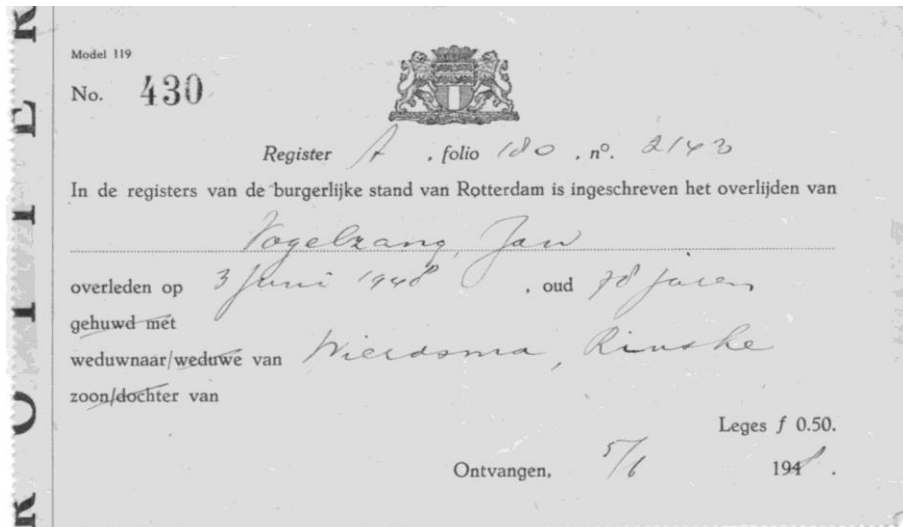 Model 119
No. 430
Register A , folio 180 , nº. 2143
In de registers van de burgerlijke stand van Rotterdam is ingeschreven het overlijden van
Vogelzang, Jan
overleden op 3 Juni 1948 , oud 78 jaren
gehuwd met
weduwnaar/weduwe van Wierdsma, Rinske
zoon/dochter van
Leges f 0.50.
Ontvangen, 5/6 1948.